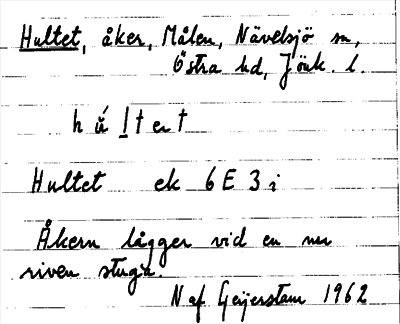 Hultet, åker, Målen, Nävelsjö sn,
Östra hd, Jönk. l.
hú̈ltet
Hultet ek 6E3i
Åkern lågger vid en nu
riven stuga.
N af Geijerstam 1962